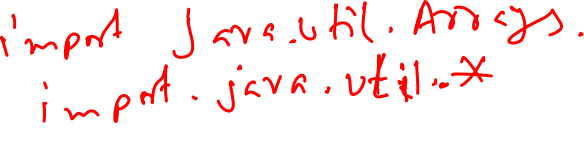 import java.util.Arrays.
import.java.util.*